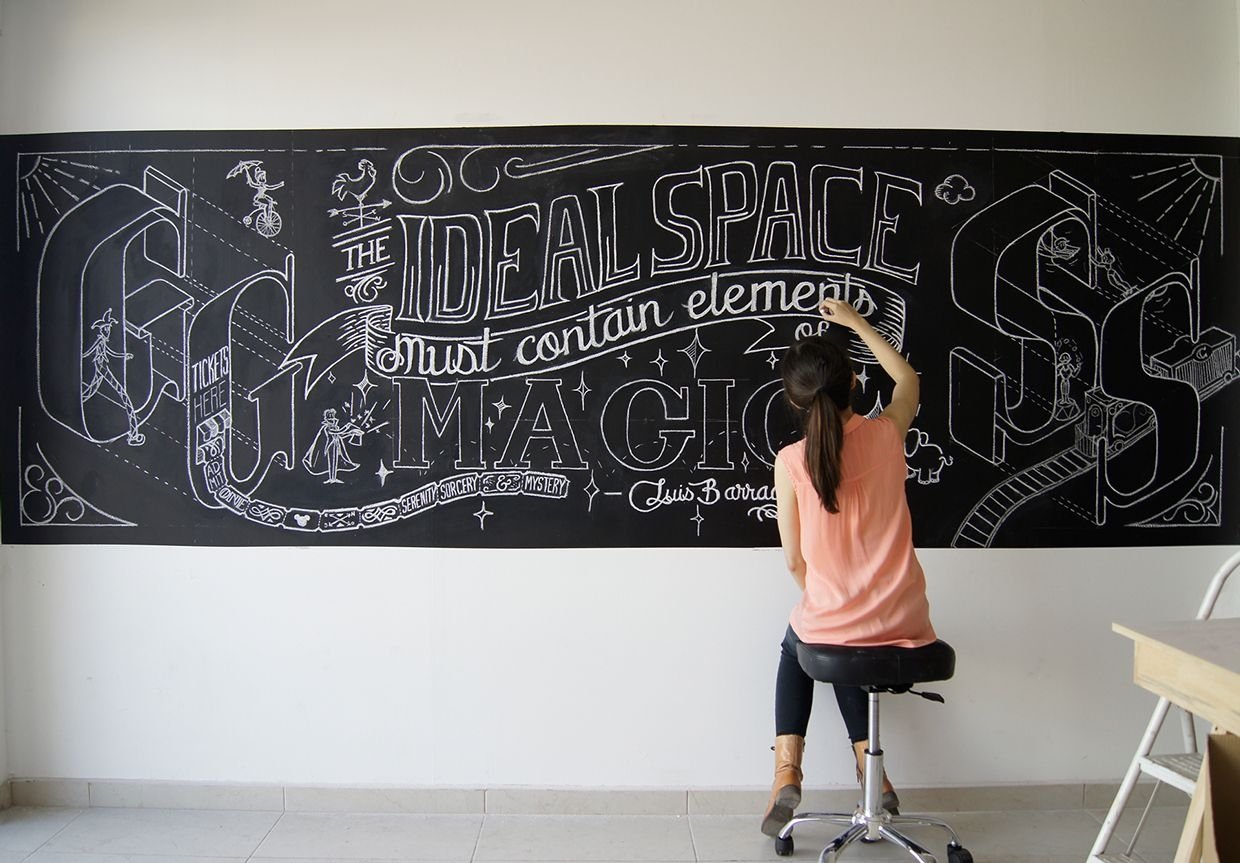 THE
IDEAL SPACE
must contain elements
of
MAGIC
— Luis Barraga
TICKETS
HERE
ADMIT
ONE
SERENITY SORCERY & MYSTERY
C